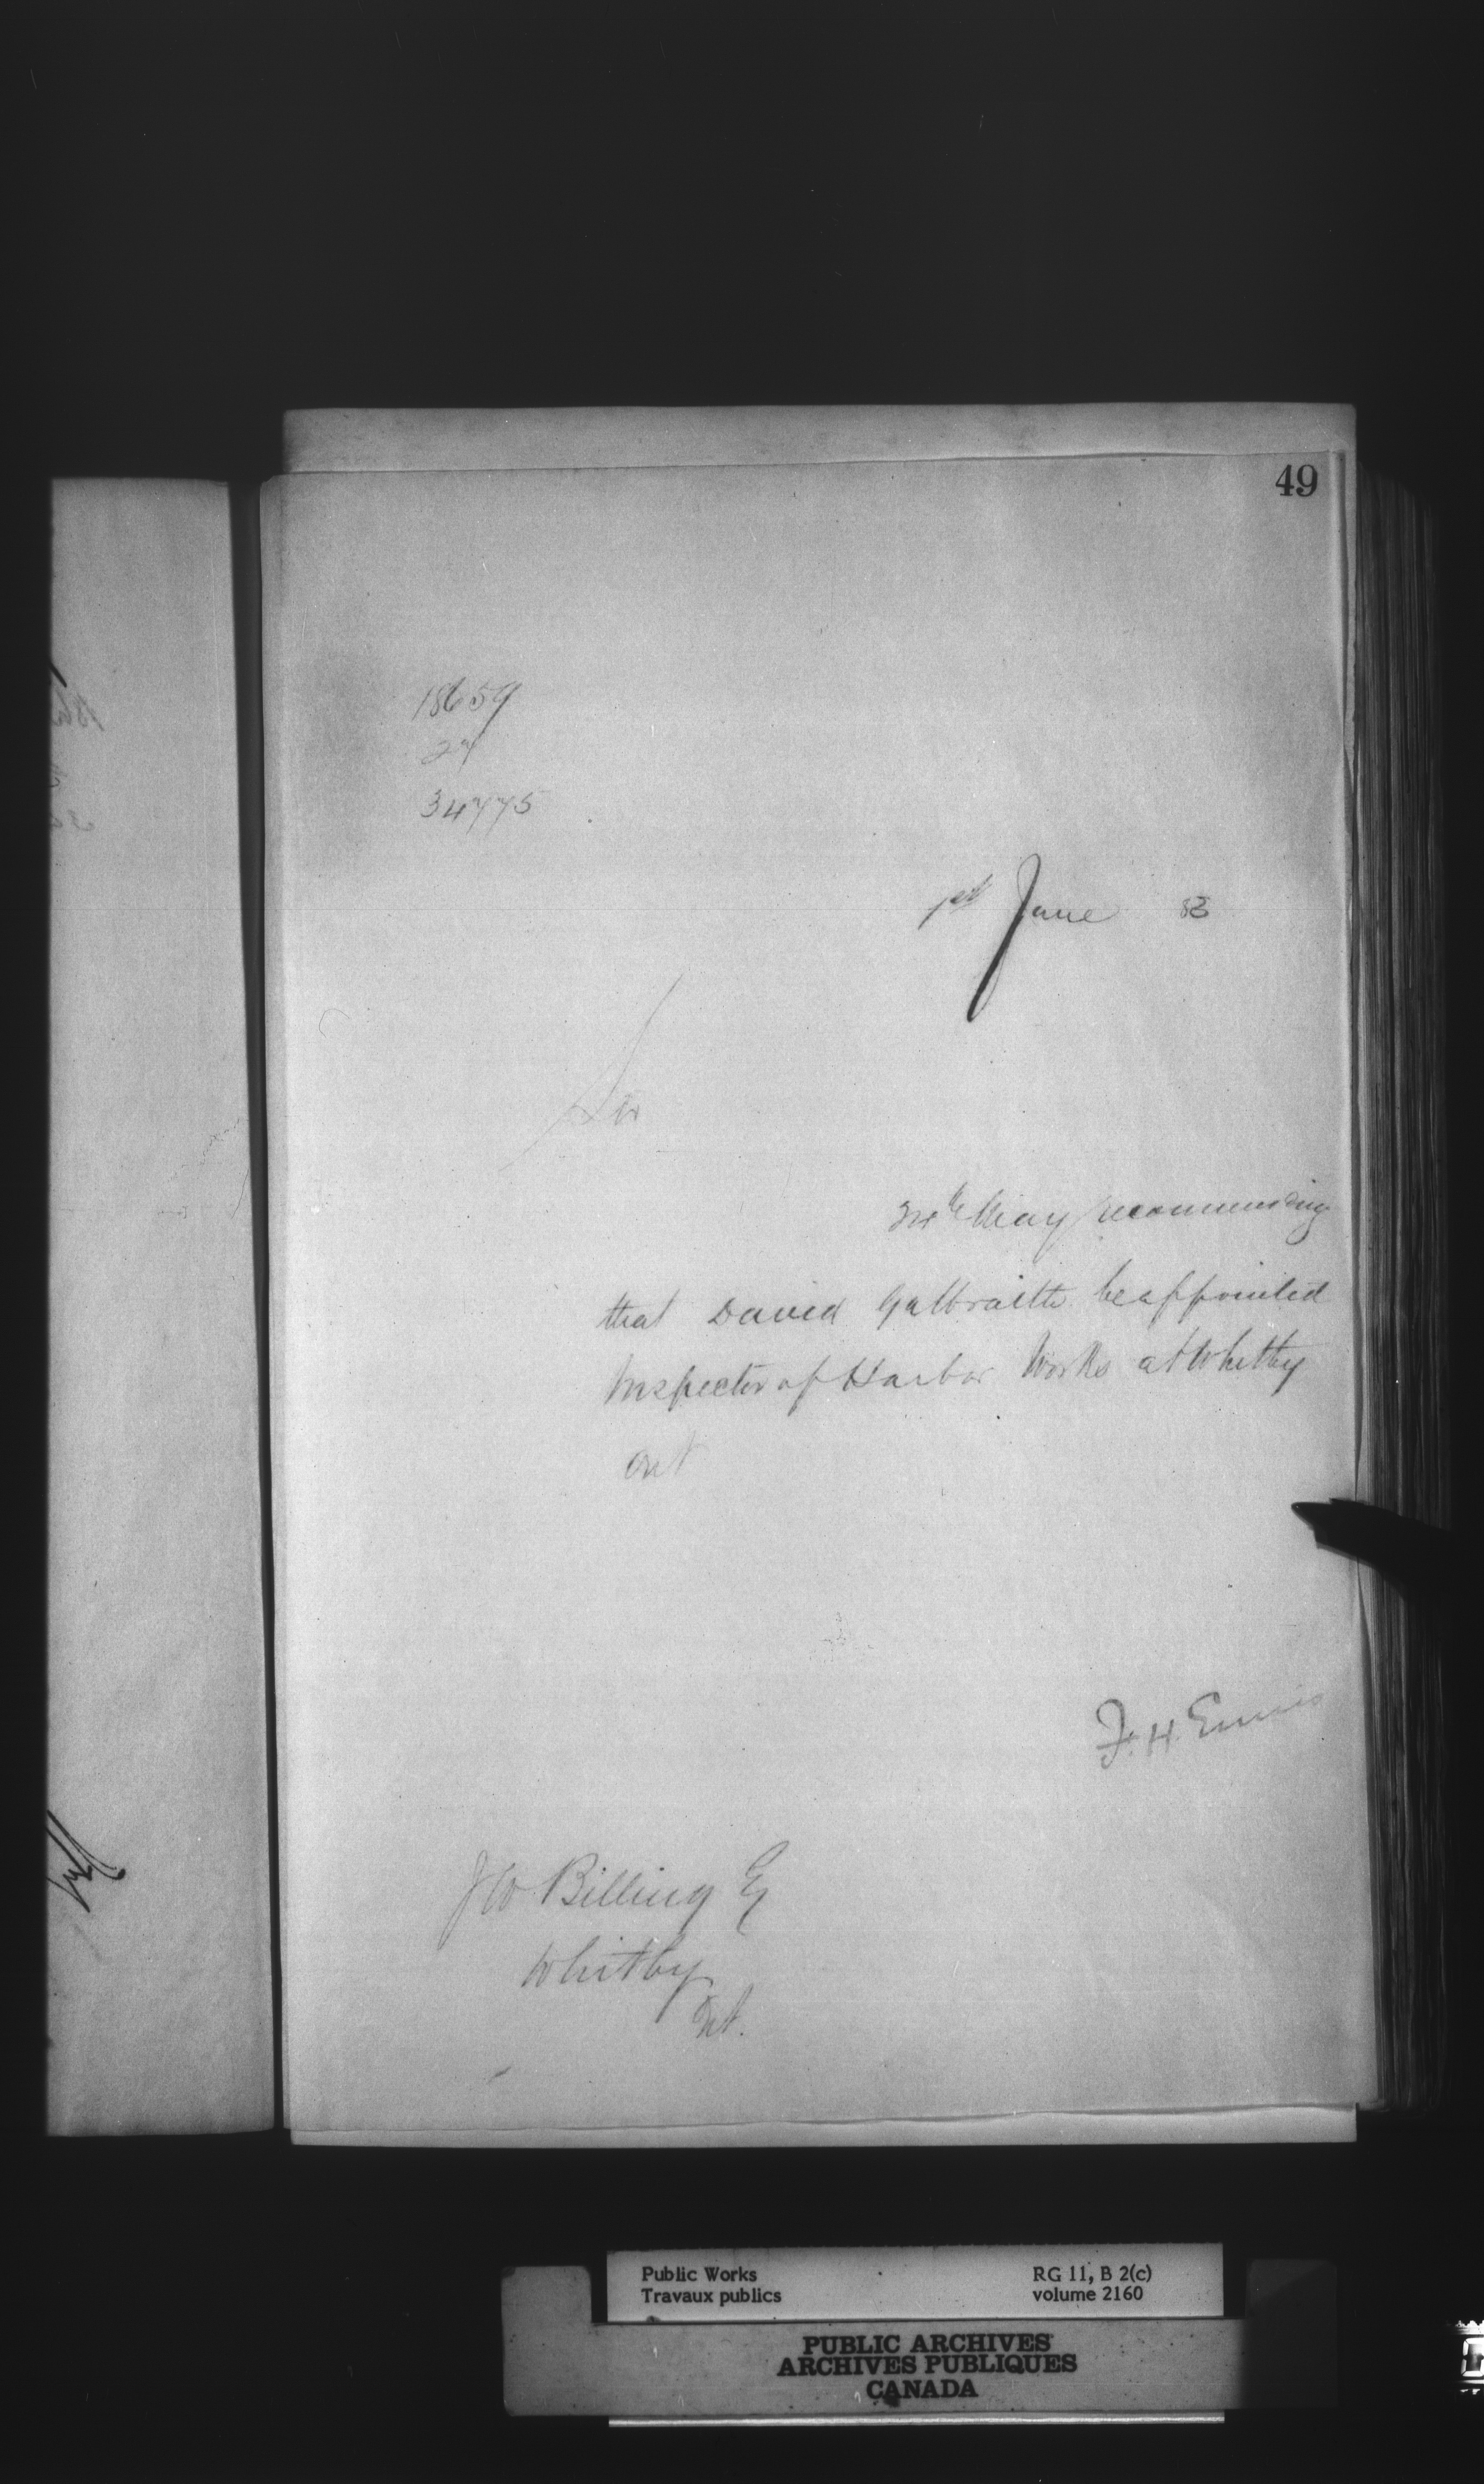 49
18659
27
34775
1st June 83
Sir
May recommending
that David Galbraith be appointed
Inspector of Harbor Works at Whitby
Ont
F. H. Ennis
J W Billing Eq
Whitby
Ont.
Public Works RG 11, B 2(c)
Travaux publics volume 2160
PUBLIC ARCHIVES
ARCHIVES PUBLIQUES
CANADA